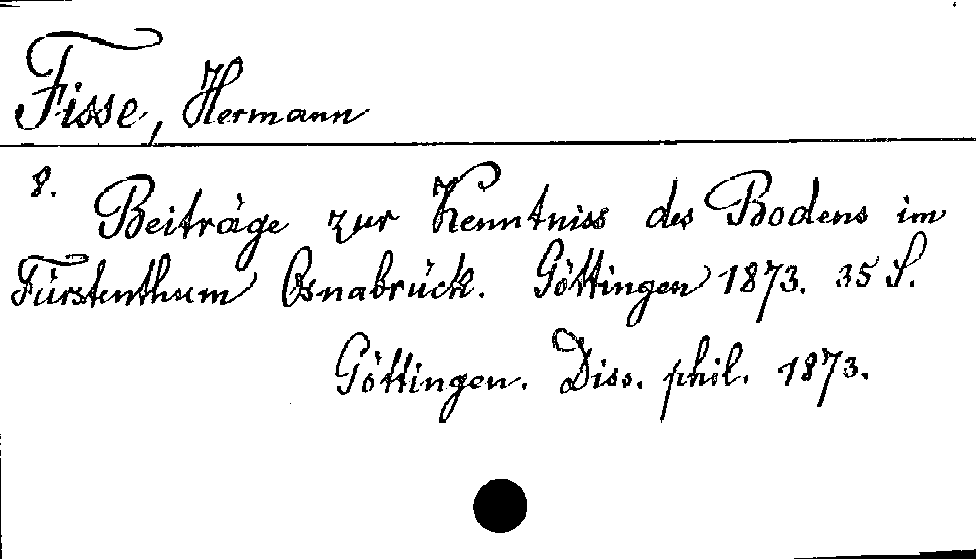 Fisse, Hermann
8.
Beiträge zur Kenntniss des Bodens im
Fürstenthum Osnabrück. Göttingen 1873. 35 S.
Göttingen. Diss. phil. 1873.